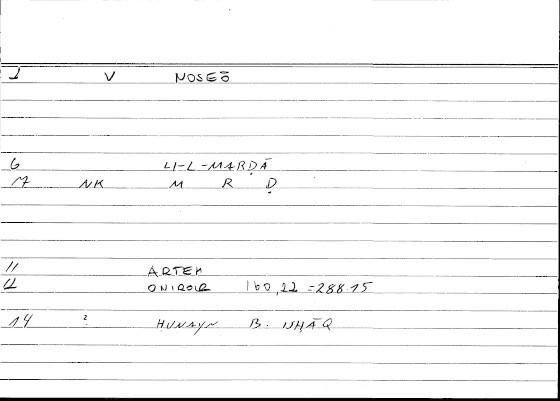 1 V NOSEŌ
6 LI-L-MARḌĀ
17 NK M R Ḍ
11 ARTEM
12 ONIROCR 160,22 =288.15
14 ? HUNAYN B. ISHĀQ